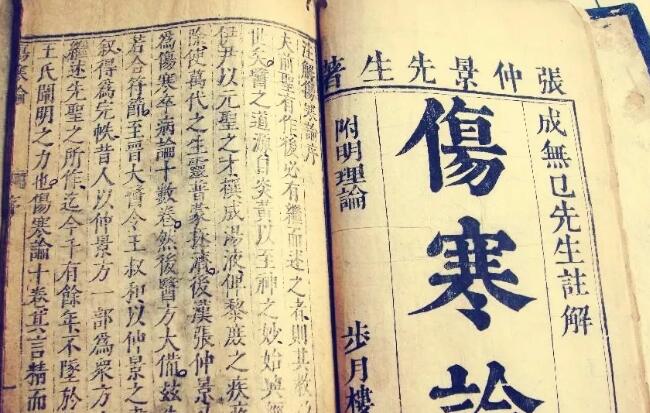 張仲景先生著
成無已先生註解
傷寒論
附明理論
步月樓
注解傷寒論序
夫前聖有作後必有繼而述之者則其教
世矣醫之道源自炎黃以至神之妙始興
伊尹以元聖之才撰成湯液俾黎庶之疾
除使萬代之生靈普蒙拯濟後漢張仲景
為傷寒卒病論十數卷然後醫方大備茲
若合符節至晉大醫令王叔和以仲景之
叙得為完帙昔人以仲景方一部為衆方
繼述先聖之所作迄今千有餘年不墜於
王氏闡明之力也傷寒論十卷其言精而
傷寒論 序